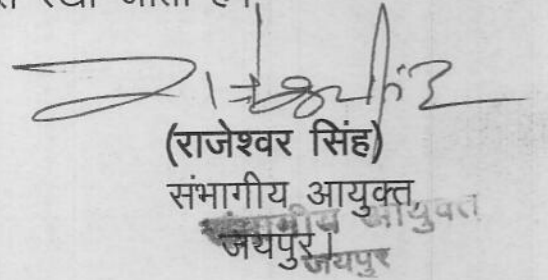 रखा जाता है।
(राजेश्वर सिंह)
संभागीय आयुक्त,
जयपुर।
संभागीय आयुक्त
जयपुर